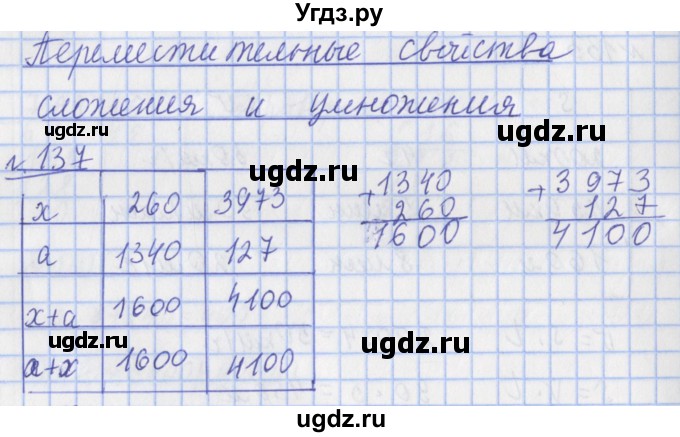 Угдз.ру
Переместительные свойства
сложения и умножения
ugdz.ru ugdz.ru
№137
x 260 3973
a 1340 127
x+a 1600 4100
a+x 1600 4100
+1340
260
1600
+3973
127
4100
ugdz.ru
ugdz.ru
ugdz.ru
ugdz.ru
ugdz.ru
ugdz.ru